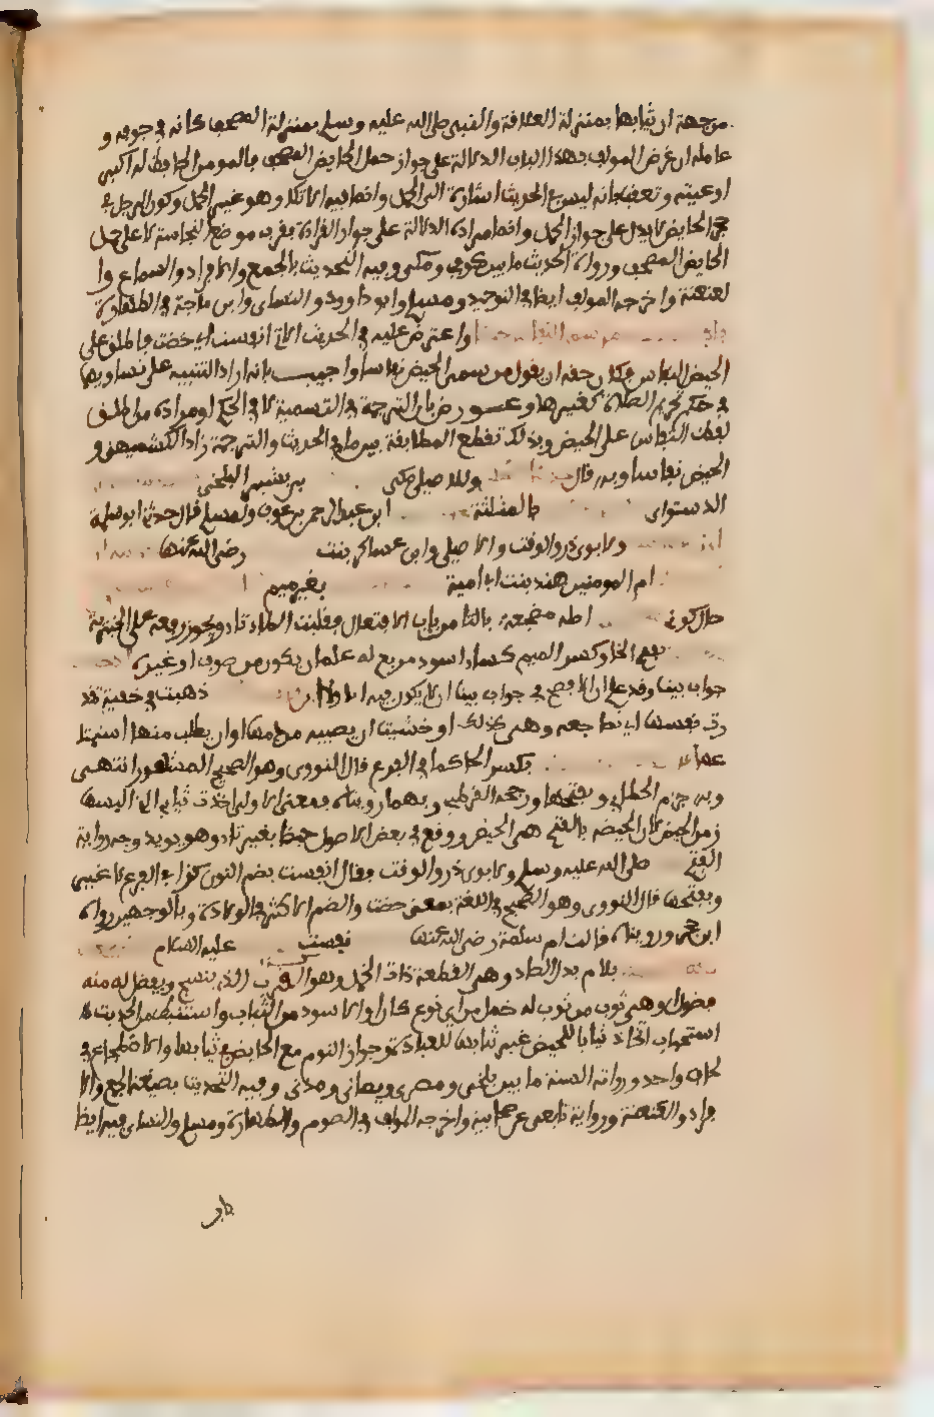 من جهة ان ثيابها بمنزلة العلاقة والنبي صلى الله عليه وسلم بمنزلة المصحف كانه في جوفه و
حامله ان غرض المولف بهذا الباب الدلالة على جواز حمل الحايض المصحف بالمومن الحافظ له اكبر
اوعيته وتعقب بانه ليس في الحديث اشارة الى الحمل وانما فيه الاتكاء وهو غير الحمل وكون الرجل في
حجر الحايض لا يدل على جواز الحمل وانما مراده الدلالة على جواز القراة بقرب موضع النجاسة لا على حمل
الحايض المصحف ورواة الحديث ما بين كوفي ومكي وفيه التحديث بالجمع والافراد والسماع وا
لعنعنة واخرجه المولف ايضا في التوحيد ومسلم وابو داوود والنساي وابن ماجة في الطهارة
من سمى النفاس حيضا واعترض عليه في الحديث الاتي انفست اي حضت فاطلق على
الحيض النفاس فكان حقه ان يقول من سمى الحيض نفاسا واجيب بانه اراد التنبيه على تساويهما
في حكم تحريم الصلاة كغيرها وعورض بان الترجمة في التسمية لا في الحكم او مراده من اطلق
لفظ النفاس على الحيض وبذلك تقع المطابقة بين ما في الحديث والترجمة زاد الكشميهني و
الحيض نفاسا وبه قال وللاصيلي مكي بن بشير البلخي
الدستواي بالمثلثة ابن عبد الرحمن بن عوف ولمسلم قال حدثني ابو سلمة
ولابوي ذر والوقت والاصيلي وابن عساكر بنت رضى الله عنها
ام المومنين هند بنت ابي امية بغير ميم
حال كوني اصله مضتجعة بالتا من باب الافتعال فقلبت التاء طاء ويجوز رفعه على الخبرية
بفتح الخا وكسر الميم كساء اسود مربع له علمان يكون من صوف او غيره
جواب بينا وقد علم ان الافصح في جواب بينا ان لا يكون فيه اذ ولا اذا ذهبت في خفية تقذ
رت نفسها ان تضاجعه وهي كذلك او خشيت ان يصيبه من دمها او ان يطلب منها استمتا
عا بكسر الحا كما في الفرع قال النووي وهو الصحيح المشهور انتهى
وبه جزم الخطابي وبفتحها ورجحه القرطبي وبهما رويناه فمعنى الاولى اخذت ثيابي التي البسها
زمن الحيض لان الحيضة بالفتح هي الحيض ووقع في بعض الاصول حيضا بغير تاء وهو يويد وجه رواية
الفتح صلى الله عليه وسلم ولابوي ذر والوقت فقال انفست بضم النون كذا في الفرع لا غير
وبفتحها قال النووي وهو الصحيح في اللغة بمعنى حضت والضم الاكثر في الولادة وبالوجهين رواه
ابن حجر ورويناه قالت ام سلمة رضى الله عنها نفست عليه السلام
بلام بدل الصاد وهي القطعة ذات الخمل وهو الهدب الذي ينسج ويفضل له منه
فضول او هي ثوب من ثوب له خمل من اي نوع كان او الاسود من الثياب واستنبط من الحديث
استحباب اتخاذ ثيابا للحيض غير ثيابها المعتادة وجواز النوم مع الحايض في ثيابها والاضطجاع في
لحاف واحد ورواته الستة ما بين بلخي ومصري ويماني ومدني وفيه التحديث بصيغة الجمع والا
فراد والعنعنة ورواية تابعي عن صحابية واخرجه المولف في الصوم والطهارة ومسلم والنساي فيه ايضا
باب